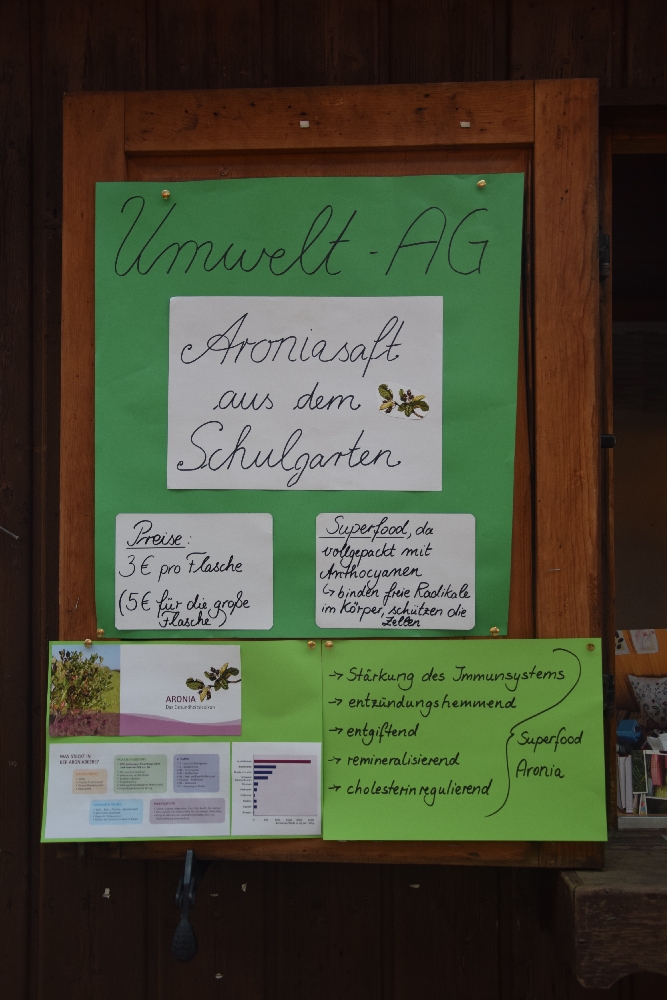 Umwelt - AG
Aroniasaft
aus dem
Schulgarten
Preise:
3€ pro Flasche
(5€ für die große
Flasche)
Superfood, da
vollgepackt mit
Anthocyanen
↳ binden freie Radikale
im Körper, schützen die
Zellen
ARONIA
Das Gesundheitslexikon
WAS STECKT IN
DER ARONIABEERE?
→ Stärkung des Immunsystems
→ entzündungshemmend
→ entgiftend
→ remineralisierend
→ cholesterinregulierend
Superfood
Aronia